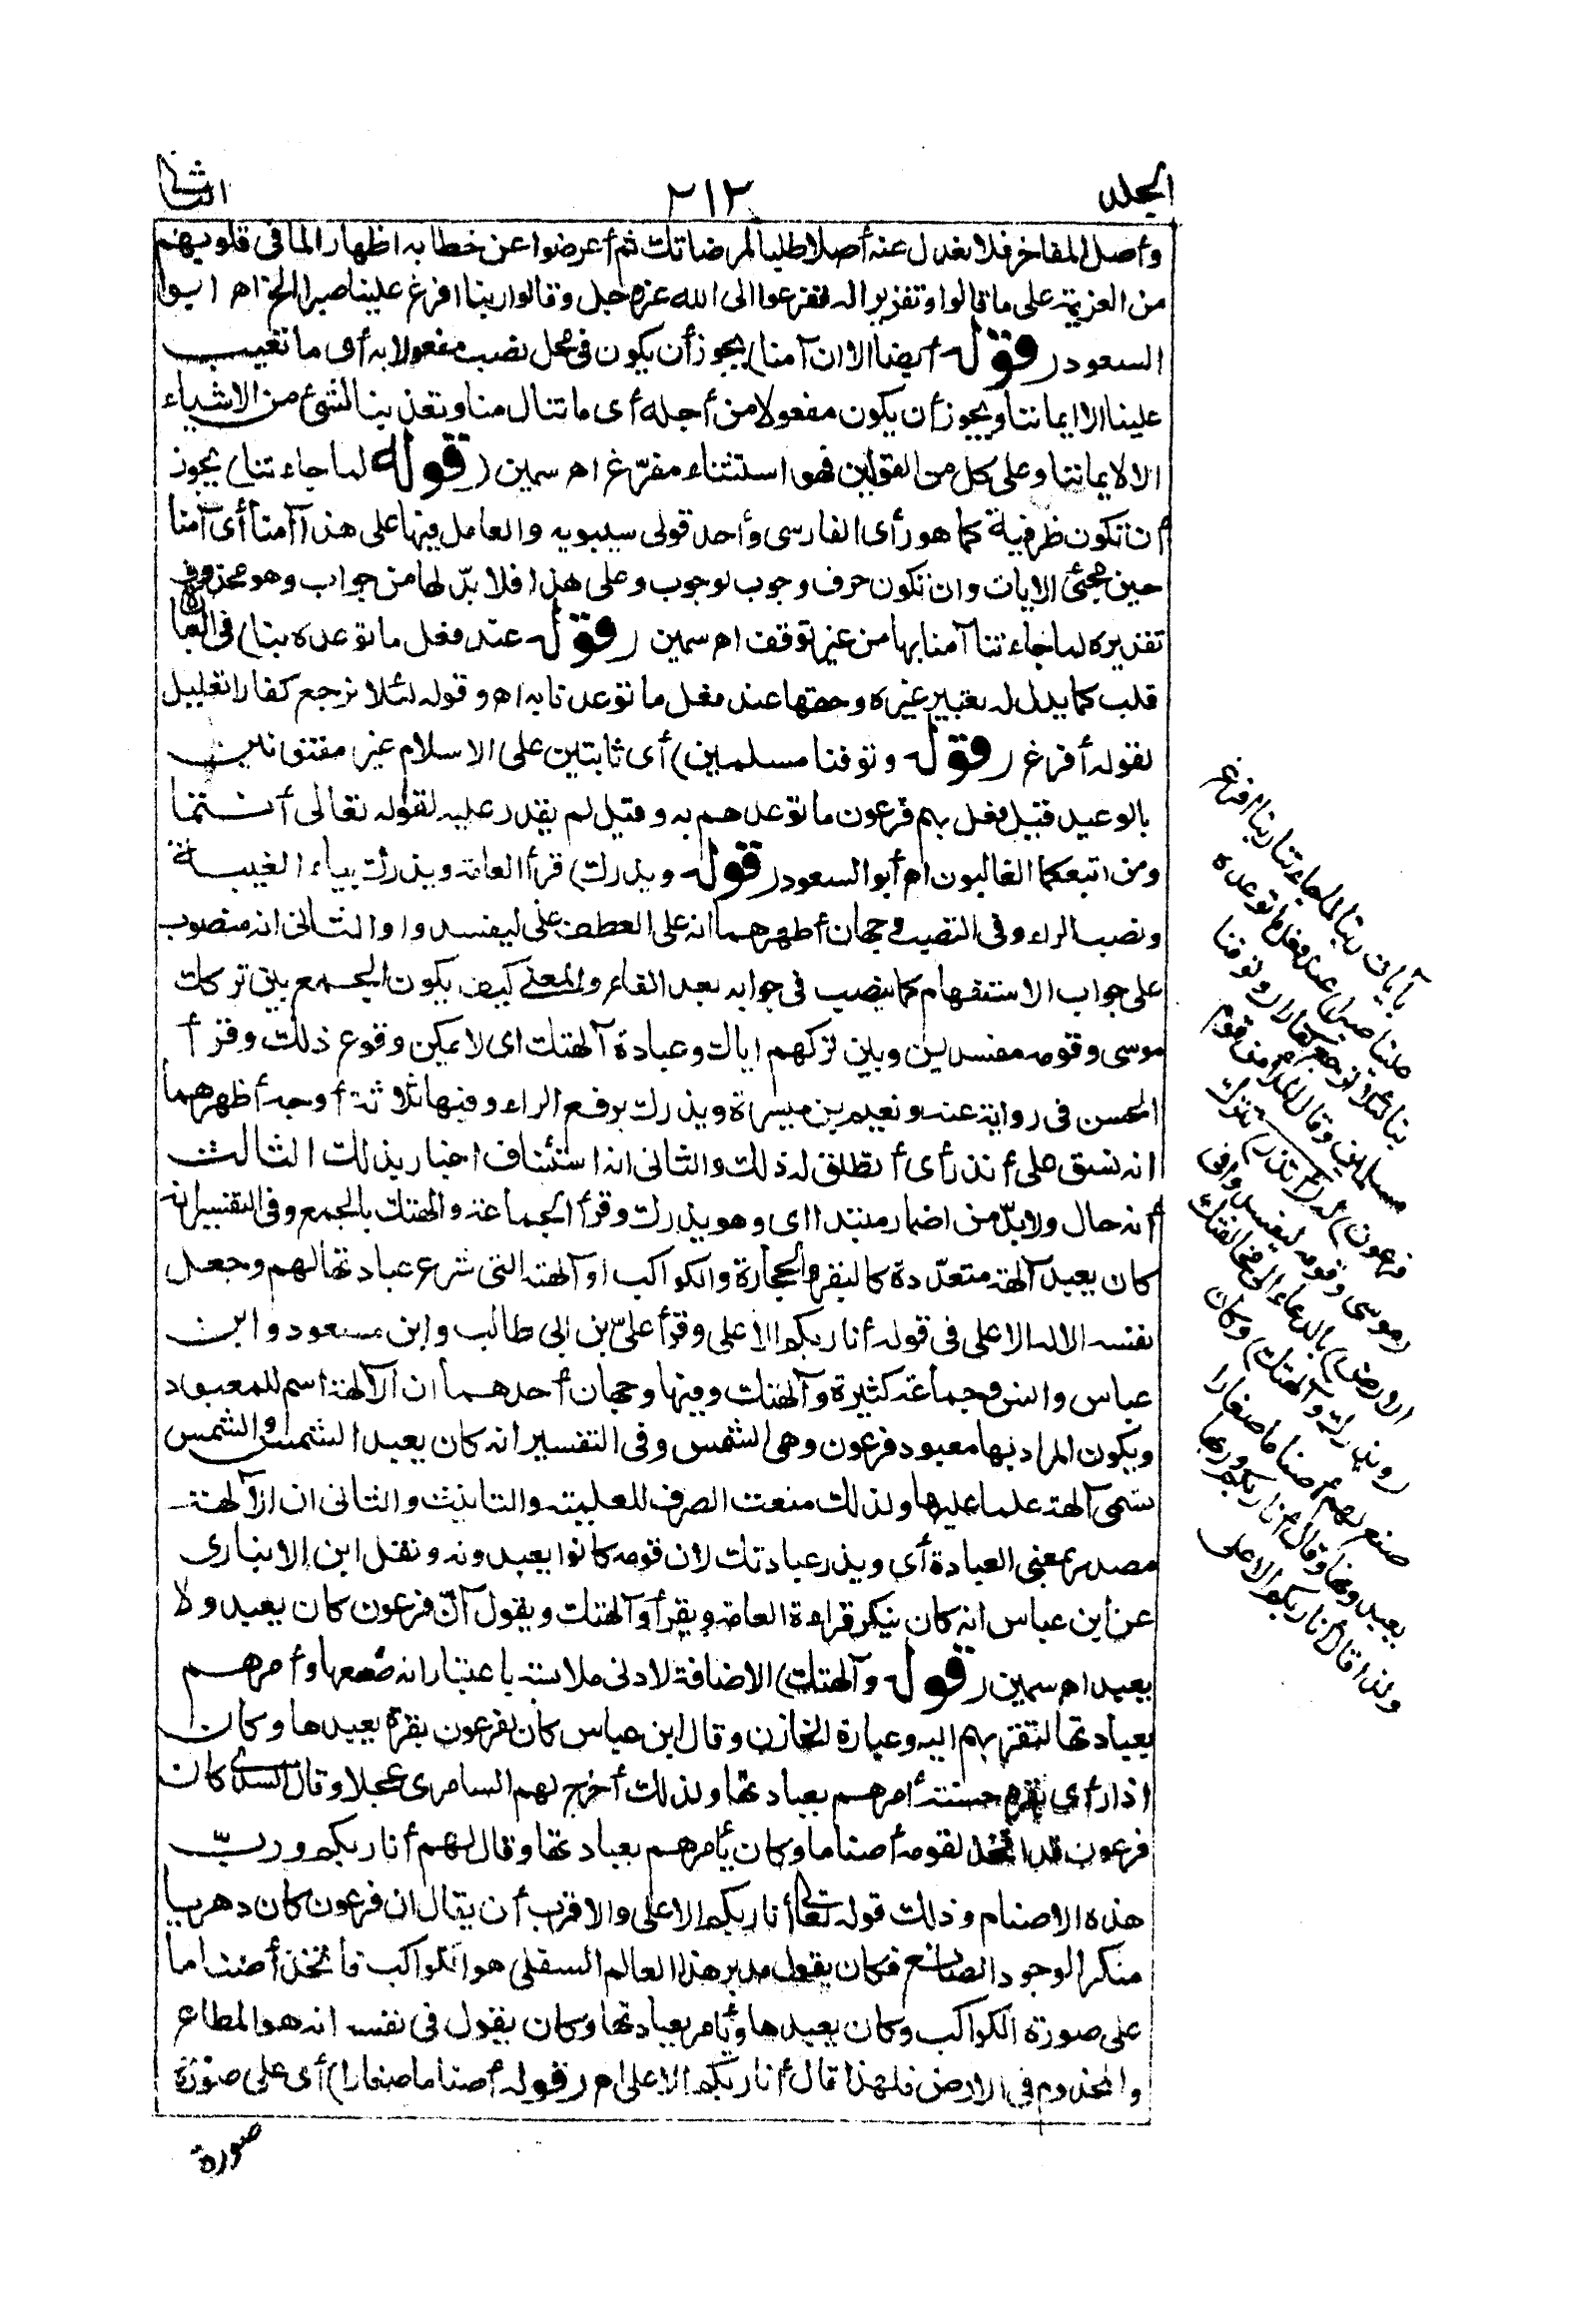 الجلد ٢١٢ الثاني
وأصل المفاخر فلا نعدل عنه أصلا طلبا لمرضاتك ثم أعرضوا عن خطابه اظهارا لما فى قلوبهم
من العزيمة على ما قالوا وتقريرا له ففزعوا الى الله عز وجل وقالوا ربنا افرغ علينا صبرا الخ اه ابو
السعود (قوله أيضا الا ان آمنا) يجوز أن يكون فى محل نصب مفعولا به أى ما تعيب
علينا الا ايماننا ويجوز أن يكون مفعولا من أجله أى ما تنال منا وتعذبنا لشئ من الاشياء
الا لايماننا وعلى كل من القولين فهو استثناء مفرّغ اه سمين (قوله لما جاءتنا) يجوز
أن تكون ظرفية كما هو رأى الفارسى وأحد قولى سيبويه والعامل فيها على هذا آمنا أى آمنا
حين مجئ الايات وان تكون حرف وجوب لوجوب وعلى هذا فلا بدّ لها من جواب وهو محذوف
تقديره لما جاءتنا آمنا بها من غير توقف اه سمين (قوله عند فعل ما توعده بنا) فى العبارة
قلب كما يدل له تعبير غيره وحقها عند فعل ما توعدنا به اه وقوله لئلا نرجع كفارا تعليل
لقوله أفرغ (قوله وتوفنا مسلمين) أى ثابتين على الاسلام غير مفتونين
بالوعيد قيل فعل بهم فرعون ما توعدهم به وقيل لم يقدر عليه لقوله تعالى أنتما
ومن اتبعكما الغالبون اه أبو السعود (قوله ويذرك) قرأ العامة ويذرك بياء الغيبة
ونصب الراء وفى النصب وجهان أظهرهما انه على العطف على ليفسدوا والثانى انه منصوب
على جواب الاستفهام كما ينصب فى جوابه بعد الفاء والمعنى كيف يكون الجمع بين تركك
موسى وقومه مفسدين وبين تركهم اياك وعبادة آلهتك اى لا يمكن وقوع ذلك وقرأ
الحسن فى رواية عنه ونعيم بن ميسرة ويذرك برفع الراء وفيها ثلاثة أوجه أظهرهما
انه نسق على أتذر أى أتطلق له ذلك والثانى انه استئناف اخبار بذلك الثالث
أنه حال ولا بدّ من اضمار مبتدا اى وهو يذرك وقرأ الجماعة وآلهتك بالجمع وفى التفسير انه
كان يعبد آلهة متعدّدة كالبقر والحجارة والكواكب او آلهته التى شرع عبادتها لهم وجعل
نفسه الاله الاعلى فى قوله أنا ربكم الاعلى وقرأ علىّ بن ابى طالب وابن مسعود وابن
عباس وانس وجماعة كثيرة وآلهتك وفيها وجهان أحدهما ان الآلهة اسم للمعبود
ويكون المراد بها معبود فرعون وهى الشمس وفى التفسير انه كان يعبد الشمس والشمس
تسمى آلهة علما عليها ولذلك منعت الصرف للعلمية والتانيث والثانى ان الآلهة
مصدر بمعنى العبادة أى ويذر عبادتك لان قومه كانوا يعبدونه ونقل ابن الانبارى
عن ابن عباس انه كان ينكر قراءة العامة ويقرأ وآلهتك ويقول انّ فرعون كان يعبد ولا
يعبد اه سمين (قوله وآلهتك) الاضافة لادنى ملابسة باعتبار انه صنعها وأمرهم
بعبادتها لتقربهم اليه وعبارة الخازن وقال ابن عباس كان لفرعون بقرة يعبدها وكان
اذا رأى بقرة حسنة أمرهم بعبادتها ولذلك أخرج لهم السامرى عجلا وقال السدى كان
فرعون قد اتخذ لقومه أصناما وكان يأمرهم بعبادتها وقال لهم أنا ربكم وربّ
هذه الاصنام وذلك قوله تعالى أنا ربكم الاعلى والاقرب أن يقال ان فرعون كان دهريا
منكرا لوجود الصانع فكان يقول مدبر هذا العالم السفلى هو الكواكب فأتخذ أصناما
على صورة الكواكب وكان يعبدها ويأمر بعبادتها وكان يقول فى نفسه انه هو المطاع
والمخدوم فى الارض فلهذا قال أنا ربكم الاعلى اه (قوله أصناما صغارا) أى على صورة
صورة
بآيات ربنا لما جاءتنا ربنا افرغ
علينا صبرا) عند فعل ما توعده
بنا لئلا نرجع كفارا (وتوفنا
مسلمين وقال الملأ من قوم
فرعون) له (أتذر) تترك
(موسى وقومه ليفسدوا فى
الارض) بالدعاء الى مخالفتك
(ويذرك وآلهتك) وكان
صنع لهم أصناما صغارا
يعبدونها وقال أنا ربكم وربها
ولذا قال أنا ربكم الاعلى